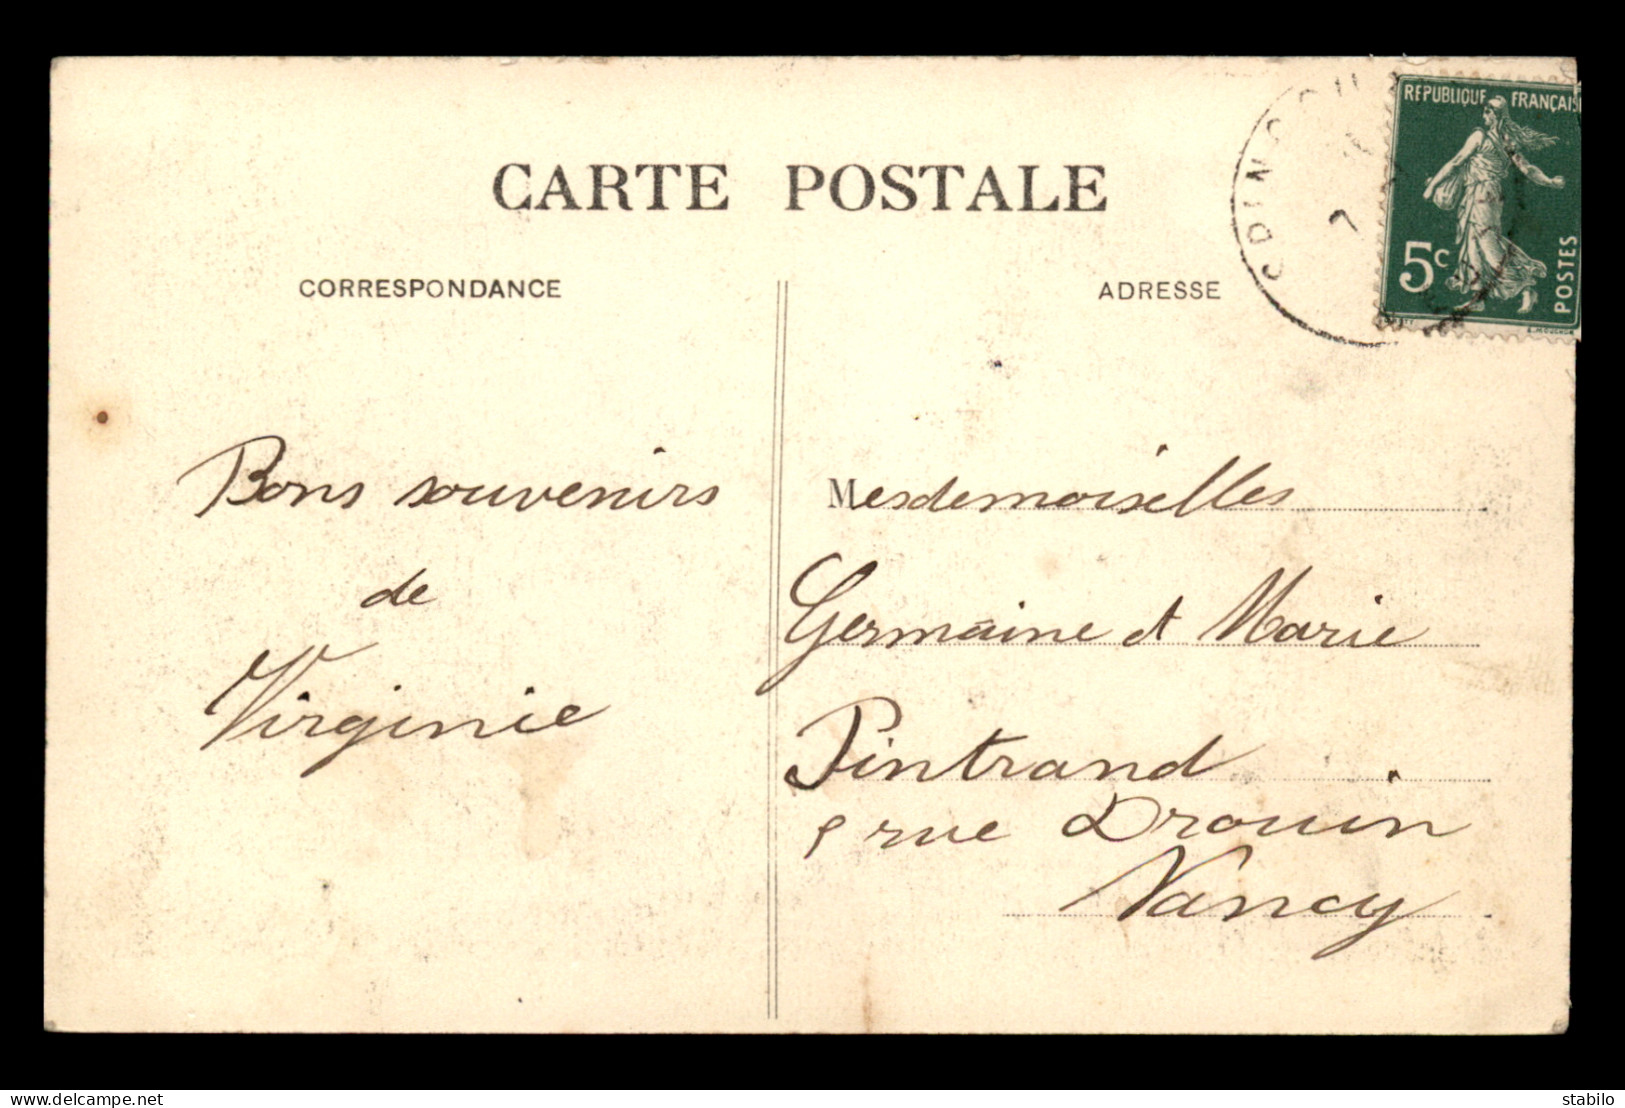 CARTE POSTALE
CORRESPONDANCE
ADRESSE
REPUBLIQUE FRANÇAIS
5c
POSTES
Bons souvenirs
de
Virginie
Mesdemoiselles
Germaine et Marie
Pintrand
rue Drouin
Nancy
delcampe.net
stabilo